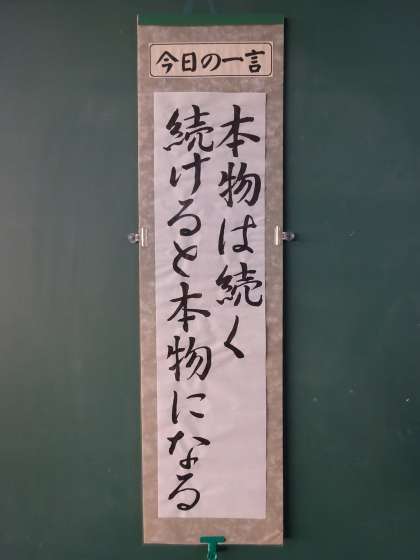 今日の一言
本物は続く
続けると本物になる